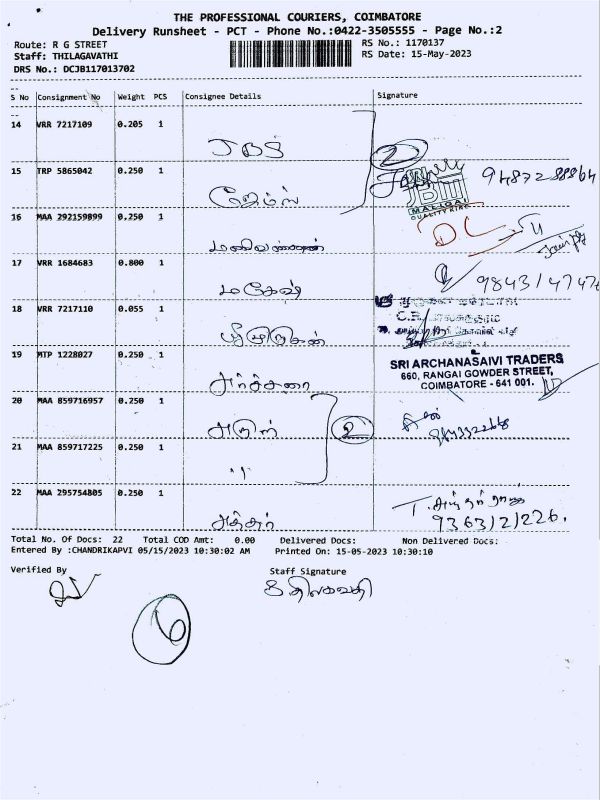 THE PROFESSIONAL COURIERS, COIMBATORE
Delivery Runsheet - PCT - Phone No.:0422-3505555 - Page No.:2
Route: R G STREET
RS No.: 1170137
Staff: THILAGAVATHI
RS Date: 15-May-2023
DRS No.: DCJB117013702
S No Consignment No Weight PCS Consignee Details Signature
14 VRR 7217109 0.205 1
JBS
2
15 TRP 5865042 0.250 1
ஜேம்ஸ்
JBM
MALIGAI
QUALITY KING
16 MAA 292159899 0.250 1
மணிவண்ணன்
17 VRR 1684683 0.800 1
மகேஷ்
18 VRR 7217110 0.055 1
ஸ்ரீமுருகன்
19 MTP 1228027 0.250 1
அர்ச்சனா
SRI ARCHANASAIVI TRADERS
660, RANGAI GOWDER STREET,
COIMBATORE - 641 001.
20 MAA 859716957 0.250 1
அருள்
2
21 MAA 859717225 0.250 1
"
22 MAA 295754805 0.250 1
Total No. Of Docs: 22 Total COD Amt: 0.00 Delivered Docs: Non Delivered Docs:
Entered By :CHANDRIKAPVI 05/15/2023 10:30:02 AM Printed On: 15-05-2023 10:30:10
Verified By Staff Signature
திலகவதி
6